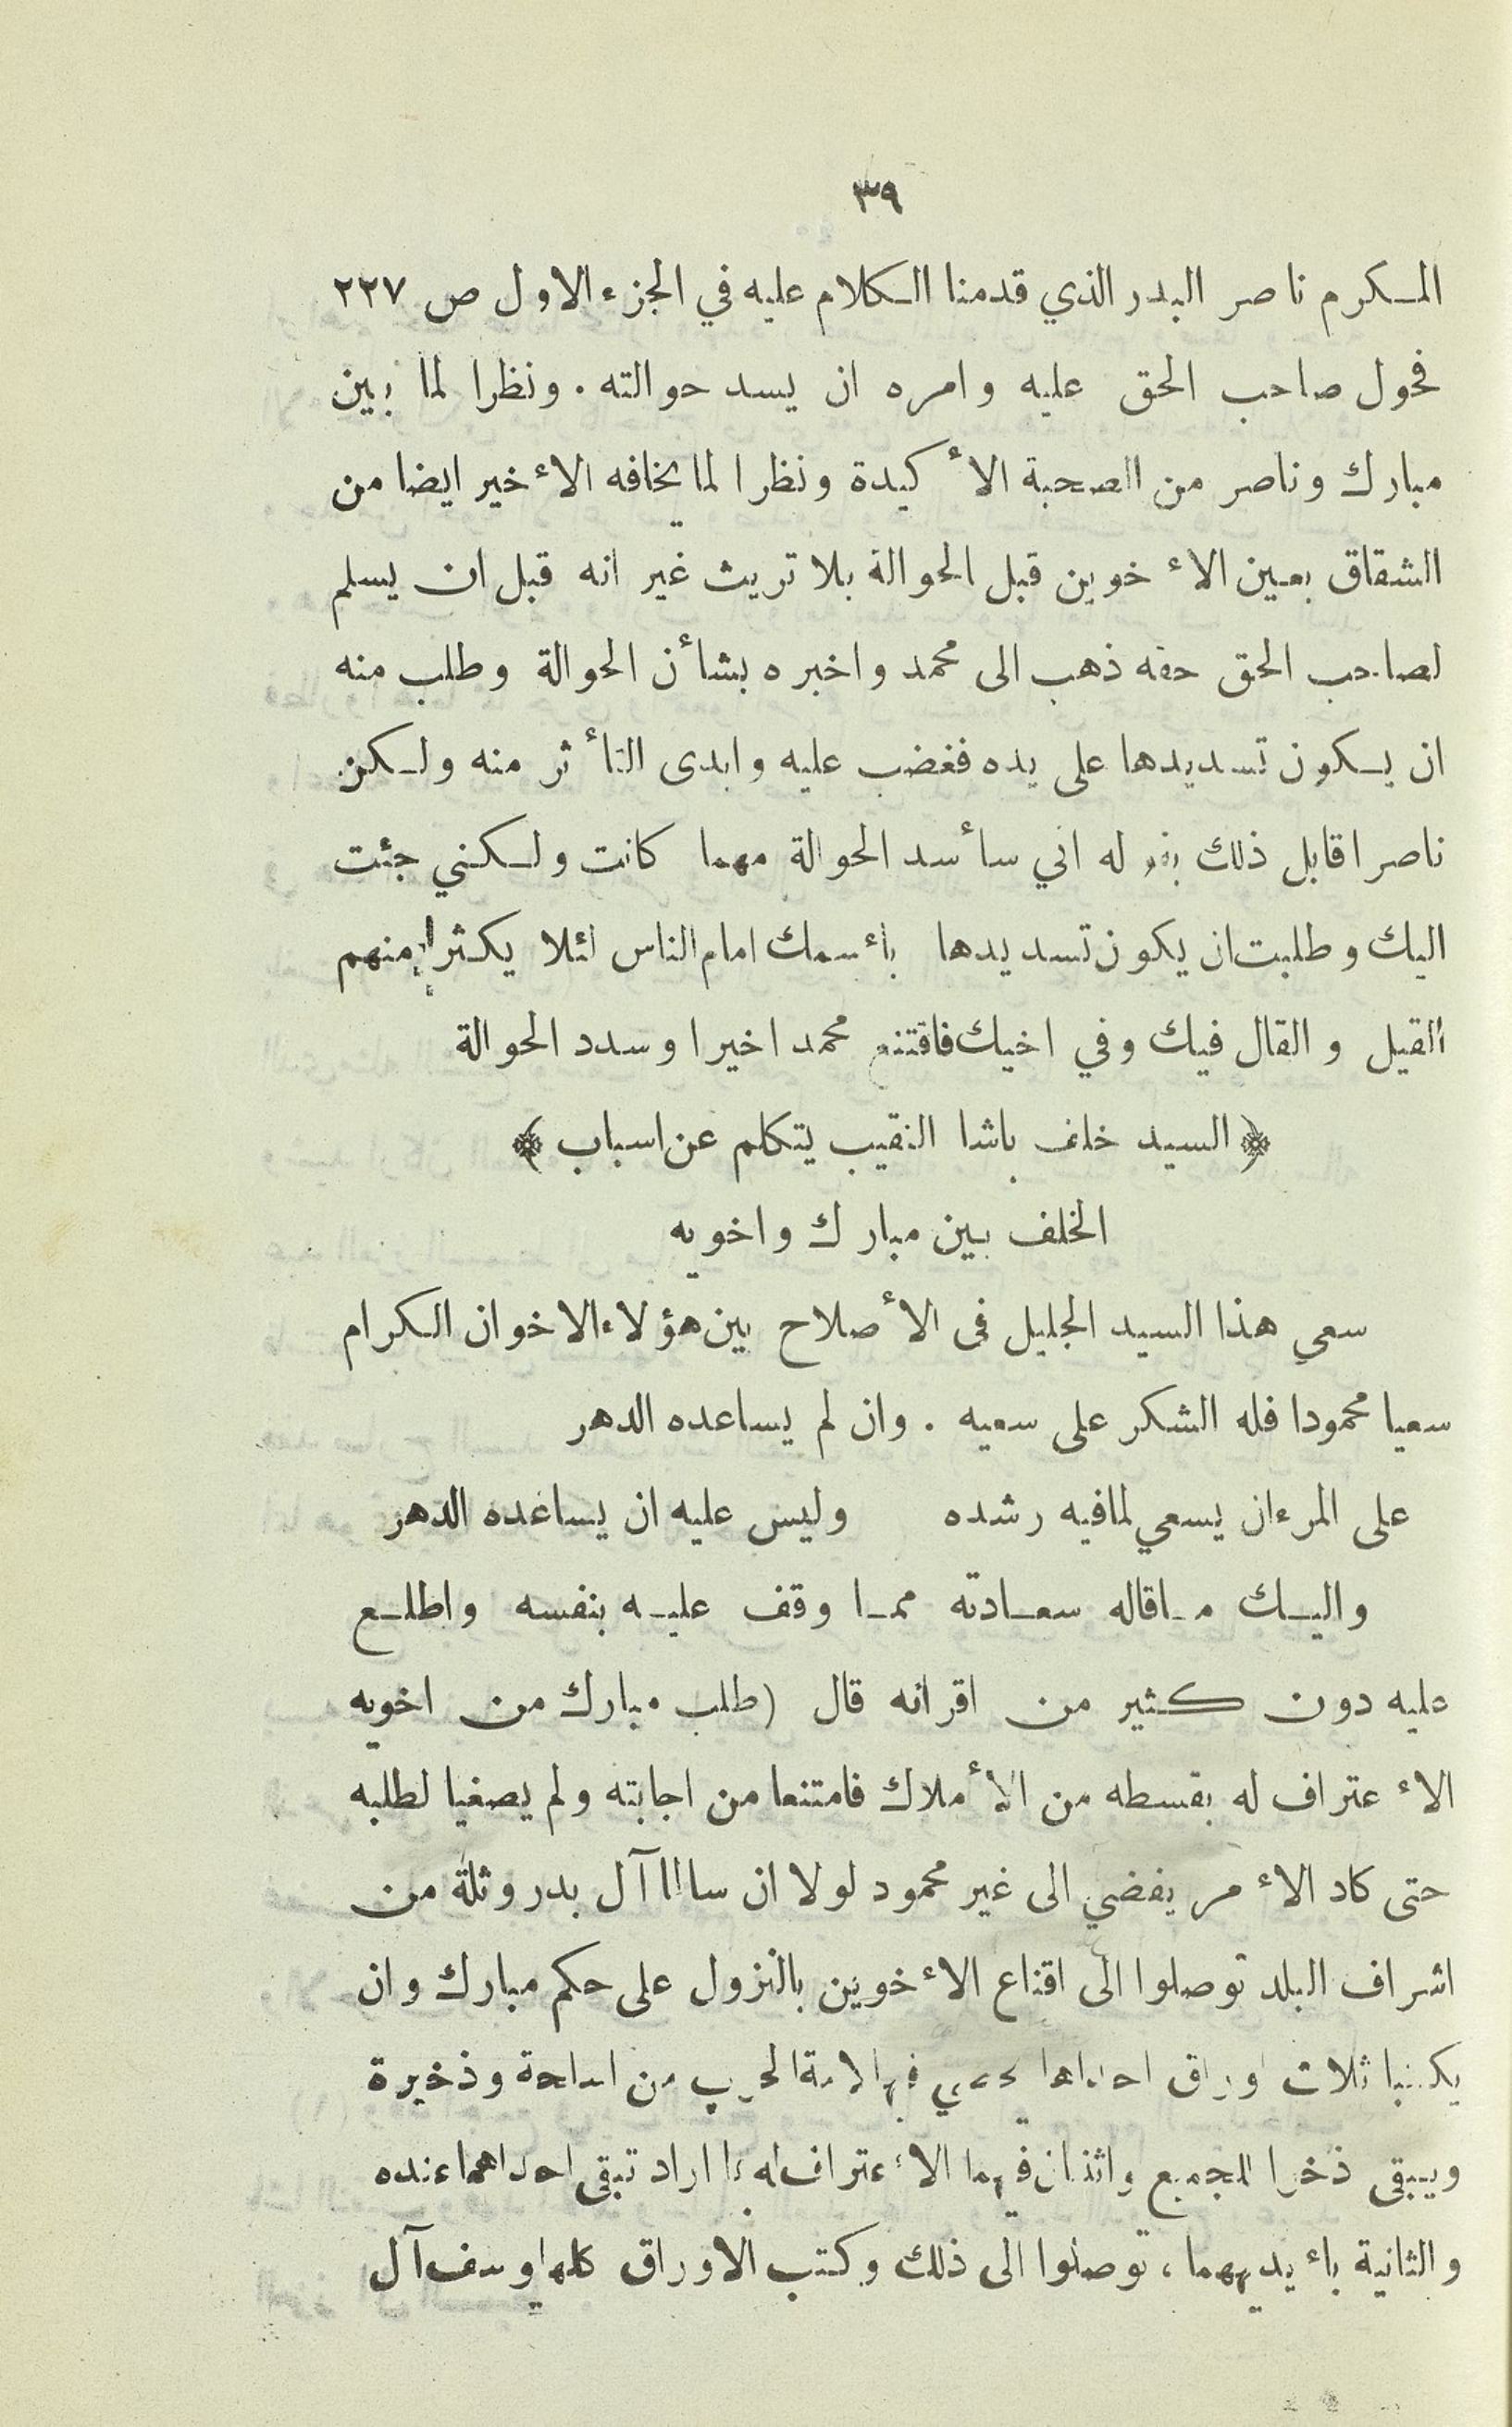 ٣٩
المكرم ناصر البدر الذي قدمنا الكلام عليه في الجزء الاول ص ٢٢٧
فحول صاحب الحق عليه وامره ان يسد حوالته . ونظرا لما بين
مبارك وناصر من الصحبة الأكيدة ونظرا لما يخافه الاءخير ايضا من
الشقاق بعين الاءخوين قبل الحوالة بلا تريث غير انه قبل ان يسلم
لصاحب الحق حقه ذهب الى محمد واخبره بشأن الحوالة وطلب منه
ان يكون تسديدها على يده فغضب عليه وابدى التأثر منه ولكن
ناصرا قابل ذلك بقوله اني سأسد الحوالة مهما كانت ولكني جئت
اليك وطلبت ان يكون تسديدها باءسمك امام الناس لئلا يكثر منهم
القيل والقال فيك وفي اخيك فاقتنع محمد اخيرا وسدد الحوالة
﴿ السيد خلف باشا النقيب يتكلم عن اسباب ﴾
الخلف بين مبارك واخويه
سعي هذا السيد الجليل في الأصلاح بين هؤلاء الاخوان الكرام
سعيا محمودا فله الشكر على سعيه . وان لم يساعده الدهر
على المرء ان يسعي لما فيه رشده وليس عليه ان يساعده الدهر
واليك ماقاله سعادته مما وقف عليه بنفسه واطلع
عليه دون كثير من اقرانه قال (طلب مبارك من اخويه
الاءعتراف له بقسطه من الأملاك فامتنعا من اجابته ولم يصغيا لطلبه
حتى كاد الاءمر يفضي الى غير محمود لولا ان سالما آل بدر وثلة من
اشراف البلد توصلوا الى اقناع الاءخوين بالنزول على حكم مبارك وان
يكتبا ثلاث اوراق احداها يحصي فيها لامة الحرب من اسلحة وذخيرة
ويبقى ذخرا للجميع واثنان فيهما الاءعتراف له بما اراد تبقى احداهما عنده
والثانية باءيديهما ، توصلوا الى ذلك وكتب الاوراق كلها يوسف آل